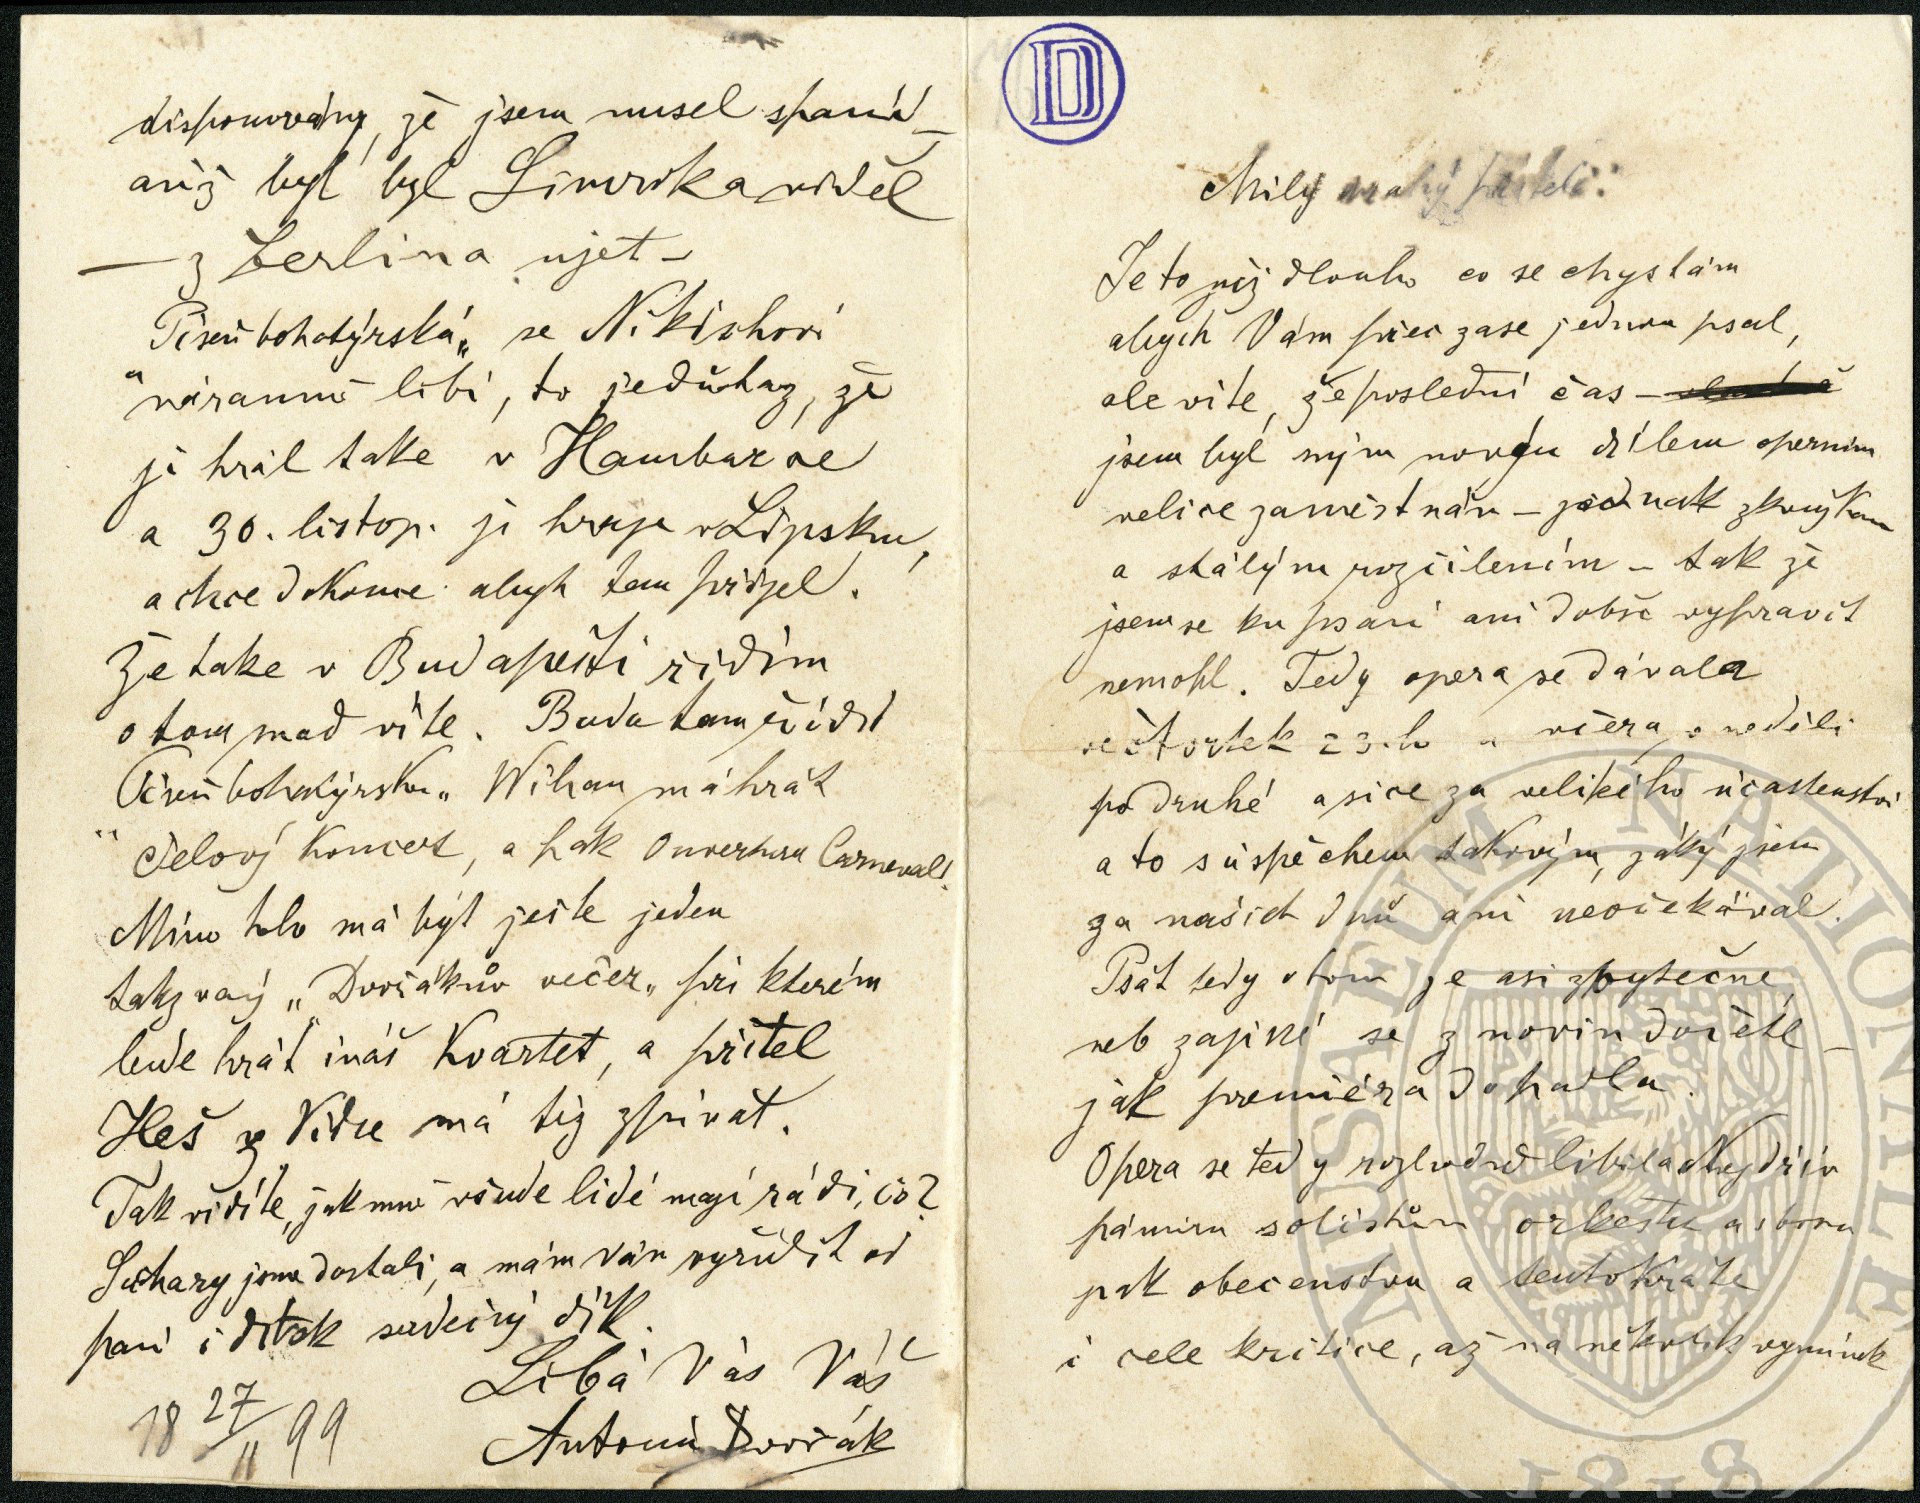 Milý drahý příteli!
Je to již dlouho co se chystám
abych Vám přec zase jednou psal,
ale víte, že poslední čas –
jsem byl mým novým dílem operním
velice zaměstnán – jednak zkouškami
a stálým rozčilením – tak že
jsem se ku psaní ani dobře vypravit
nemohl. Tedy opera se dávala
ve čtvrtek 23.ho a včera v neděli
po druhé a sice za velikého účastenství
a to s úspěchem takovým, jáký jsem
za našich dnů ani neočekával.
Psát tedy o tom je asi zbytečne,
neb zajisté se z novin dočetl –
jak premiéra dopadla.
Opera se tedy rozhodně libila Nejdřív
pánům solistům orkestru a sboru
pak obecenstvu a tentokráte
i cele kritice, až na několik vyminek
disponovány, že jsem musel spaní –
aniž byl byl Simrocka viděl
– z Berlina ujet –
Píseň bohatýrská„ se Nikischovi
"náramně libi, to jedůkaz, že
ji hrál take v Hamburce
a 30. listop. ji hraje v Lipsku,
a chce dokonce abych tam přijel.
Že take v Budapešti řidím
o tom snad víte. Budu tam řídit
Píseň bohatýrskou„ Wihan má hrát
" čelový Koncert, a pak Ouverturu Carneval!
Mimo toho má být ješte jeden
takzvaný „Dvořákův večer„ při kterém
bude hrát i náš Kvartet, a přítel
Heš z Vídne má též zpívat.
Tak vidíte, jak mne všude lidé mají rádi, co?
Suchary jsme dostali, a mám Vám vyřídit od
paní i dítek srdečný dík.
Libá Vás Váš
Antonín Dvořák
18 27/11 99
D
MUSAEUM NATIONALE
1818